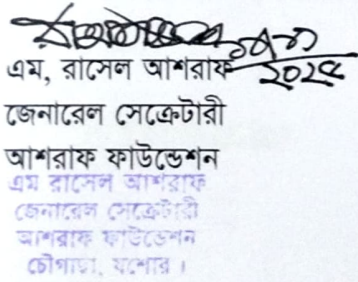 এম, রাসেল আশরাফ
২০২৫
জেনারেল সেক্রেটারী
আশরাফ ফাউন্ডেশন
এম রাসেল আশরাফ
জেনারেল সেক্রেটারী
আশরাফ ফাউন্ডেশন
চৌগাছা, যশোর।